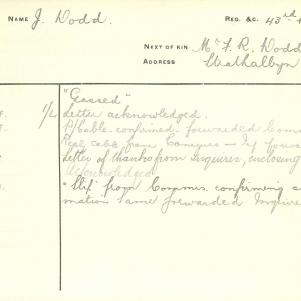 NAME J. Dodd REG. &C. 43rd
NEXT OF KIN Mr F. R. Dodd
ADDRESS Strathalbyn
"Gassed"
1/2 Letter acknowledged.
Cable. confirmed. forwarded Com
cable from Enquires
Letter of thanks from Inquirer, enclosing
Acknowledged
"Slip" from Commrs. confirming
mation same forwarded Inquirer